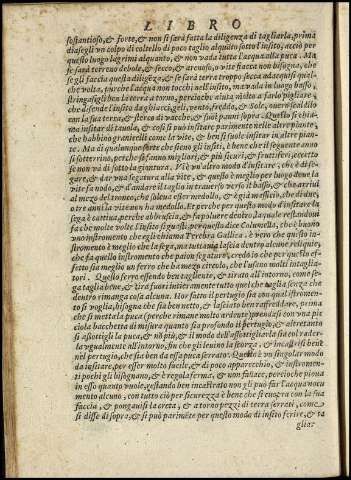 LIBRO
sostantioso, & forte, & non si sarà fatta la diligenza di tagliarla, prima
diasegli un colpo di coltello di poco taglio alquãto sotto l'insito, acciò per
questo luogo lagrimi alquanto, & non vada tutta l'acqua alla puca. Ma
se sarà terreno debole, & secco, & arenoso, o vite fiacca non bisogna, che
se gli faccia questa diligẽza, & se sarà terra troppo secca adacquisi qual-
che volta, purche l'acqua non tocchi nell'insito, ma vada in luogo basso,
stringasi gli ben la terra a torno, percioche aiuta molto a farlo pigliare,
che difende l'insito da ghiacci, geli, venti, fredda, & Sole,
con la sua terra, & sterco di vacche, & suoi panni sopra. Questo si chia-
ma insitar di tauola, & così si può insitare parimente nelle altre piante,
che habbino granirelli come la vite, & breßi uole insitar in altre pian-
te. Ma di qualunque sorte che sieno gli insiti, è bene che il seguente anno
si sotterrino, perche si fanno migliori, & più sicuri, & fruttiferi, eccetto
se non và di sotto la giuntura. Vi è un'altro modo d'insitare, che è di se-
gare, & dar una segatura alla vite, & questo è meglio per luogo doue la
vite fa nodo, & d'andare il taglio in trauerso verso il basso, & che arrivi
al mezo del tronco, che suluce esser medollo, & è già in officio, che di due,
o tre anni la vite non ha medollo. Et perche per questo modo d'insitare la
sega è cattiva, perche abbruscia, & fa polvere dentro, la quale restandovi
fa che molte volte l'insito si guasti, per questo dice Columella, che è buono
uno instromento che egli chiama Terebra Gallica. è vero che questo in-
stromento è meglio che la sega, ma tuttavia lascia dentro alcune reliquie,
che fa quello instromento che paion segature, credo io che per questo ef-
fetto sia meglio un ferro che ha mezo circolo, che l'usano molti intaglia-
tori. Quello ferro essendo ben tagliente, & tirato all'intorno, come se-
ga taglia bene, & tira fuori intieramente tutto quel che taglia senza che
dentro rimanga cosa alcuna. Hor fatto il pertugio sia con qual instromen-
to si voglia, bisogna che sia ben netto, & lasciato ben raffreddare, prima
che si metta la puca (perche rimane molto ardente) vendasi con una pic
ciola bacchetta di misura quanto sia profondo il pertugio, & altretanto
si assottigli la puca, & nõ più, & il modo dell'assottigliarla sia col rader-
la ugualmente all'intorno, fin che gli leuino la scorza, & incastrisi ben
nel pertugio, che sia ben da essa puca serrato. Quello è un singolar modo
da insitare, per esser molto facile, & di poco apparecchio, & instromen-
ti pochi gli bisognano, & è regola ferma, & non fallace, percioche piova
in esso quanto vuole, restando ben incastrato non gli può far l'acqua nocu
mento alcuno, con tutto ciò per sicurezza è bene che si cuopra con la sua
faccia, & pongavisi la creta, & a torno pezzi di terra serrati, come
si disse di sopra, & si può parimẽte per questo modo di insito ferire, & ta
gliar